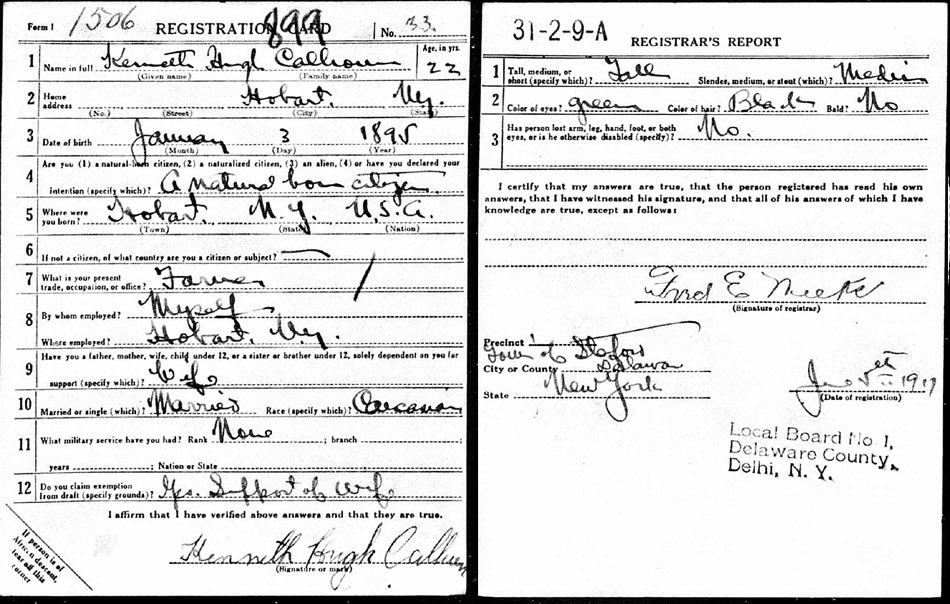 Form 1 1506 REGISTRATION CARD 899 No. 33.
1 Name in full Kenneth Hugh Calhoun Age, in yrs. 22
(Given name) (Family name)
2 Home address Hobart. N.y.
(No.) (Street) (City) (State)
3 Date of birth January 3 1895
(Month) (Day) (Year)
4 Are you (1) a natural-born citizen, (2) a naturalized citizen, (3) an alien, (4) or have you declared your
intention (specify which)? A natural born citizen
5 Where were you born? Hobart. N.y. U.S.A.
(Town) (State) (Nation)
6 If not a citizen, of what country are you a citizen or subject?
7 What is your present trade, occupation, or office? Farmer
8 By whom employed? Myself
Where employed? Hobart. N.y.
9 Have you a father, mother, wife, child under 12, or a sister or brother under 12, solely dependent on you for
support (specify which)? Wife
10 Married or single (which)? Married Race (specify which)? Caucasian
11 What military service have you had? Rank None ; branch ;
years ; Nation or State
12 Do you claim exemption from draft (specify grounds)? Yes. Support of Wife
I affirm that I have verified above answers and that they are true.
Kenneth Hugh Calhoun
(Signature or mark)
If person is of
African descent,
tear off this
corner
31-2-9-A
REGISTRAR'S REPORT
1 Tall, medium, or short (specify which)? Tall Slender, medium, or stout (which)? Medium
2 Color of eyes? green Color of hair? Black Bald? No
3 Has person lost arm, leg, hand, foot, or both eyes, or is he otherwise disabled (specify)? No.
I certify that my answers are true, that the person registered has read his own
answers, that I have witnessed his signature, and that all of his answers of which I have
knowledge are true, except as follows:
Fred E
(Signature of registrar)
Precinct 1
Town of
City or County Delaware
State New York
June 5th 1917
(Date of registration)
Local Board No. 1,
Delaware County,
Delhi, N. Y.